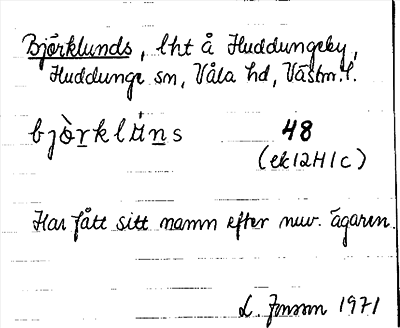 Björklunds, lht å Huddungeby,
Huddunge sn, Våla hd, Västm. l.
bjò̀rklùns 48
(ek 12H1c)
Har fått sitt namn efter nuv. ägaren.
L. Jonsson 1971